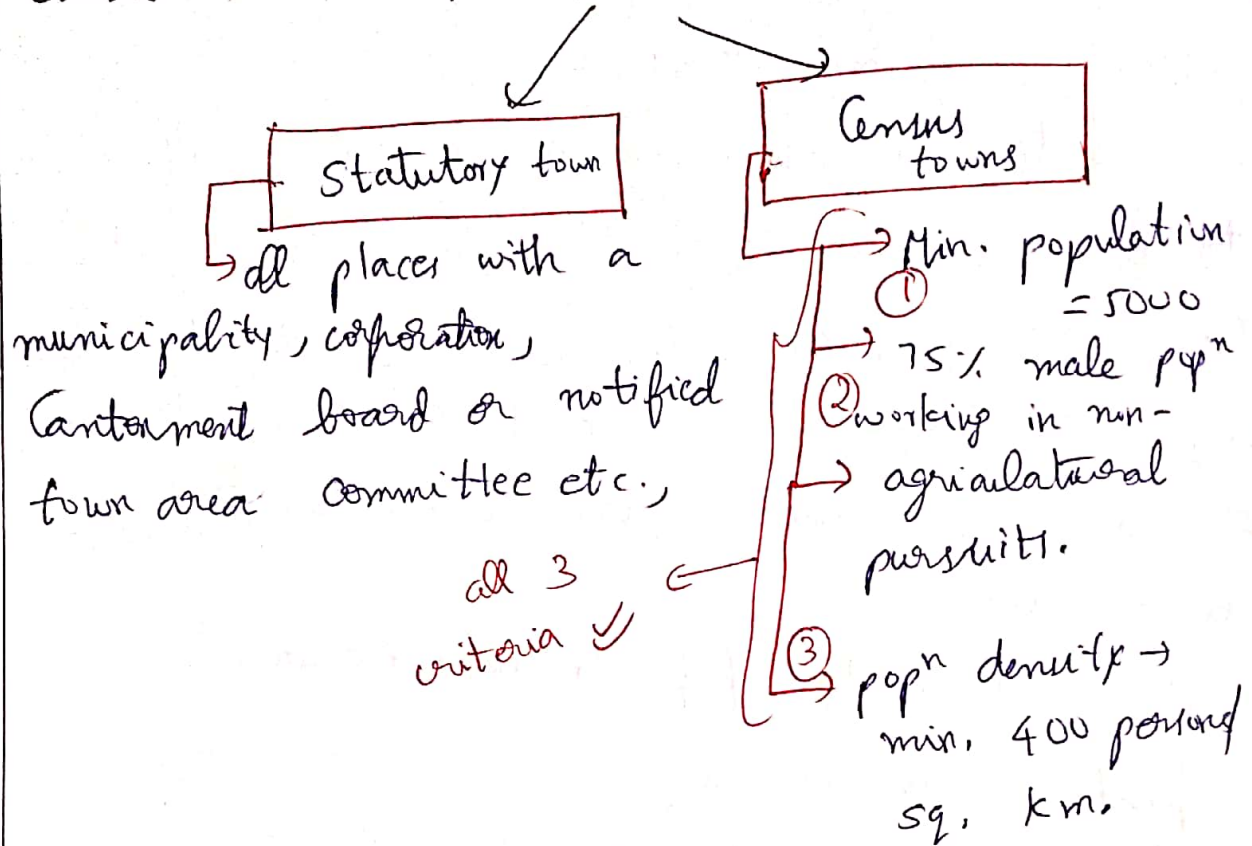 Statutory town
→ all places with a
municipality, corporation,
Cantonment board or notified
town area committee etc.,
Census
towns
→ Min. population
① = 5000
→ 75% male popⁿ
② working in non-
→ agricultural
pursuits.
all 3
criteria ✓
③ popⁿ density →
min. 400 persons/
sq. km.